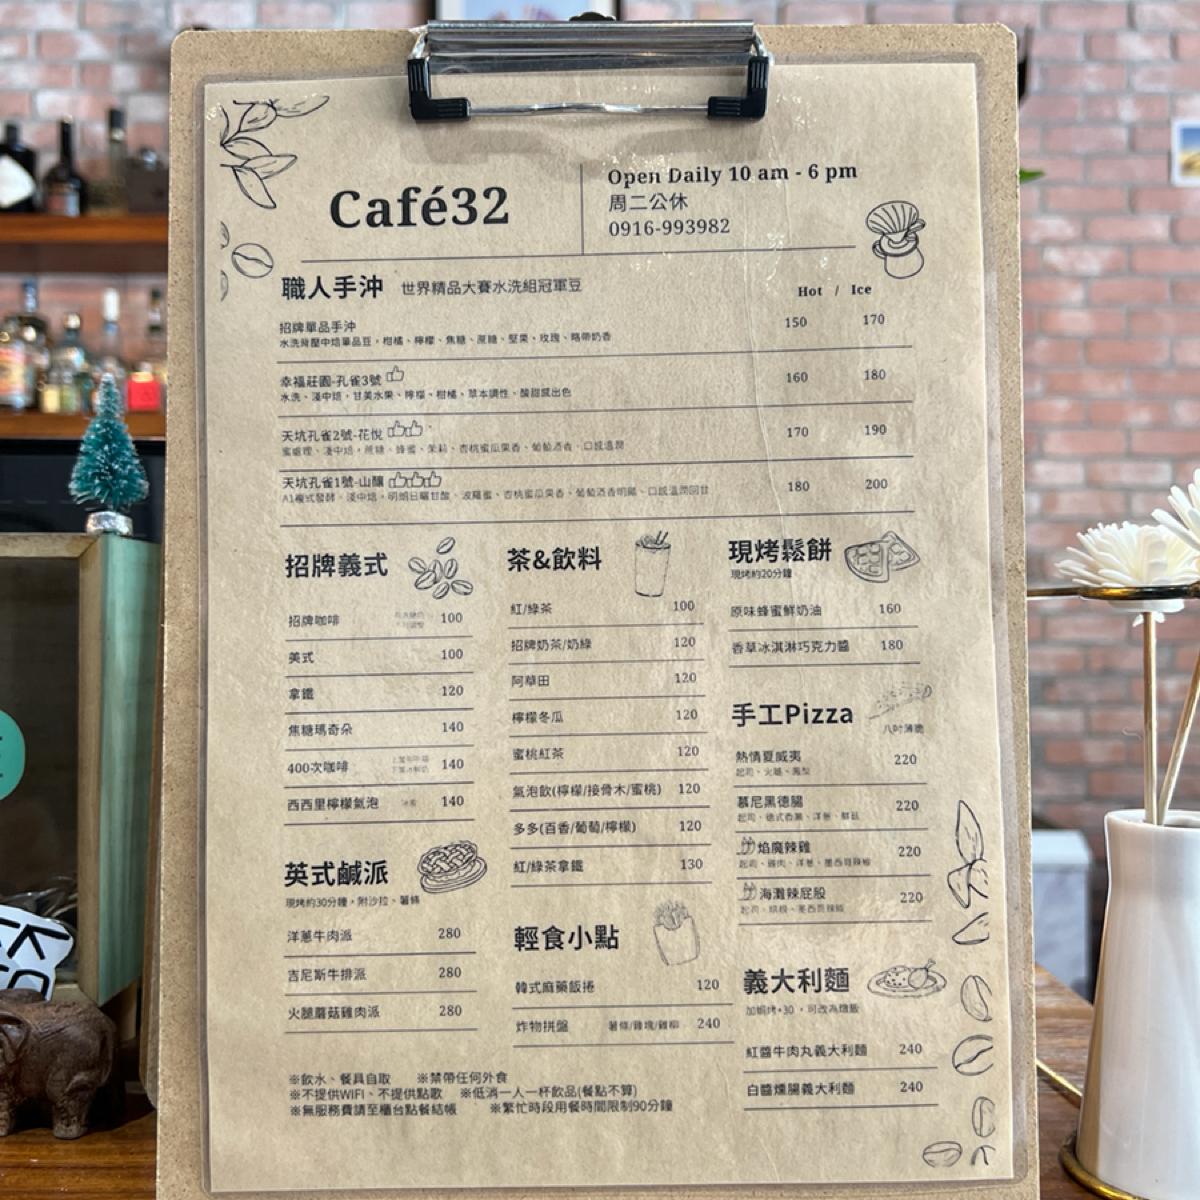 Café32
Open Daily 10 am - 6 pm
周二公休
0916-993982
職人手沖 世界精品大賽水洗組冠軍豆
Hot / Ice
招牌單品手沖 150 170
水洗背壓中焙單品豆，柑橘、檸檬、焦糖、蔗糖、堅果、玫瑰、略帶奶香
幸福莊園-孔雀3號 160 180
水洗、淺中焙，甘美水果、檸檬、柑橘、草本調性，酸甜感出色
天坑孔雀2號-花悅 170 190
蜜處理、淺中焙，蔗糖、蜂蜜、茉莉、杏桃蜜瓜果香、葡萄酒香、口感溫潤
天坑孔雀1號-山釀 180 200
A1複式發酵、淺中焙，明朗日曬甘酸、波羅蜜、杏桃蜜瓜果香、葡萄酒香明顯、口感溫潤回甘
招牌義式
招牌咖啡 100
美式 100
拿鐵 120
焦糖瑪奇朵 140
400次咖啡 140
西西里檸檬氣泡 140
英式鹹派
現烤約30分鐘，附沙拉、薯條
洋蔥牛肉派 280
吉尼斯牛排派 280
火腿蘑菇雞肉派 280
茶&飲料
紅/綠茶 100
招牌奶茶/奶綠 120
阿華田 120
檸檬冬瓜 120
蜜桃紅茶 120
氣泡飲(檸檬/接骨木/蜜桃) 120
多多(百香/葡萄/檸檬) 120
紅/綠茶拿鐵 130
輕食小點
韓式麻藥飯捲 120
炸物拼盤 薯條/雞塊/雞柳 240
現烤鬆餅
現烤約20分鐘
原味蜂蜜鮮奶油 160
香草冰淇淋巧克力醬 180
手工Pizza
八吋薄脆
熱情夏威夷 220
起司、火腿、鳳梨
慕尼黑德腸 220
起司、德式香腸、洋蔥、鮮菇
焰魔辣雞 220
起司、雞肉、洋蔥、墨西哥辣椒
海灘辣屁股 220
義大利麵
加焗烤+30，可改為燉飯
紅醬牛肉丸義大利麵 240
白醬燻腸義大利麵 240
※飲水、餐具自取 ※禁帶任何外食
※不提供WIFI、不提供點歌 ※低消一人一杯飲品(餐點不算)
※無服務費請至櫃台點餐結帳 ※繁忙時段用餐時間限制90分鐘